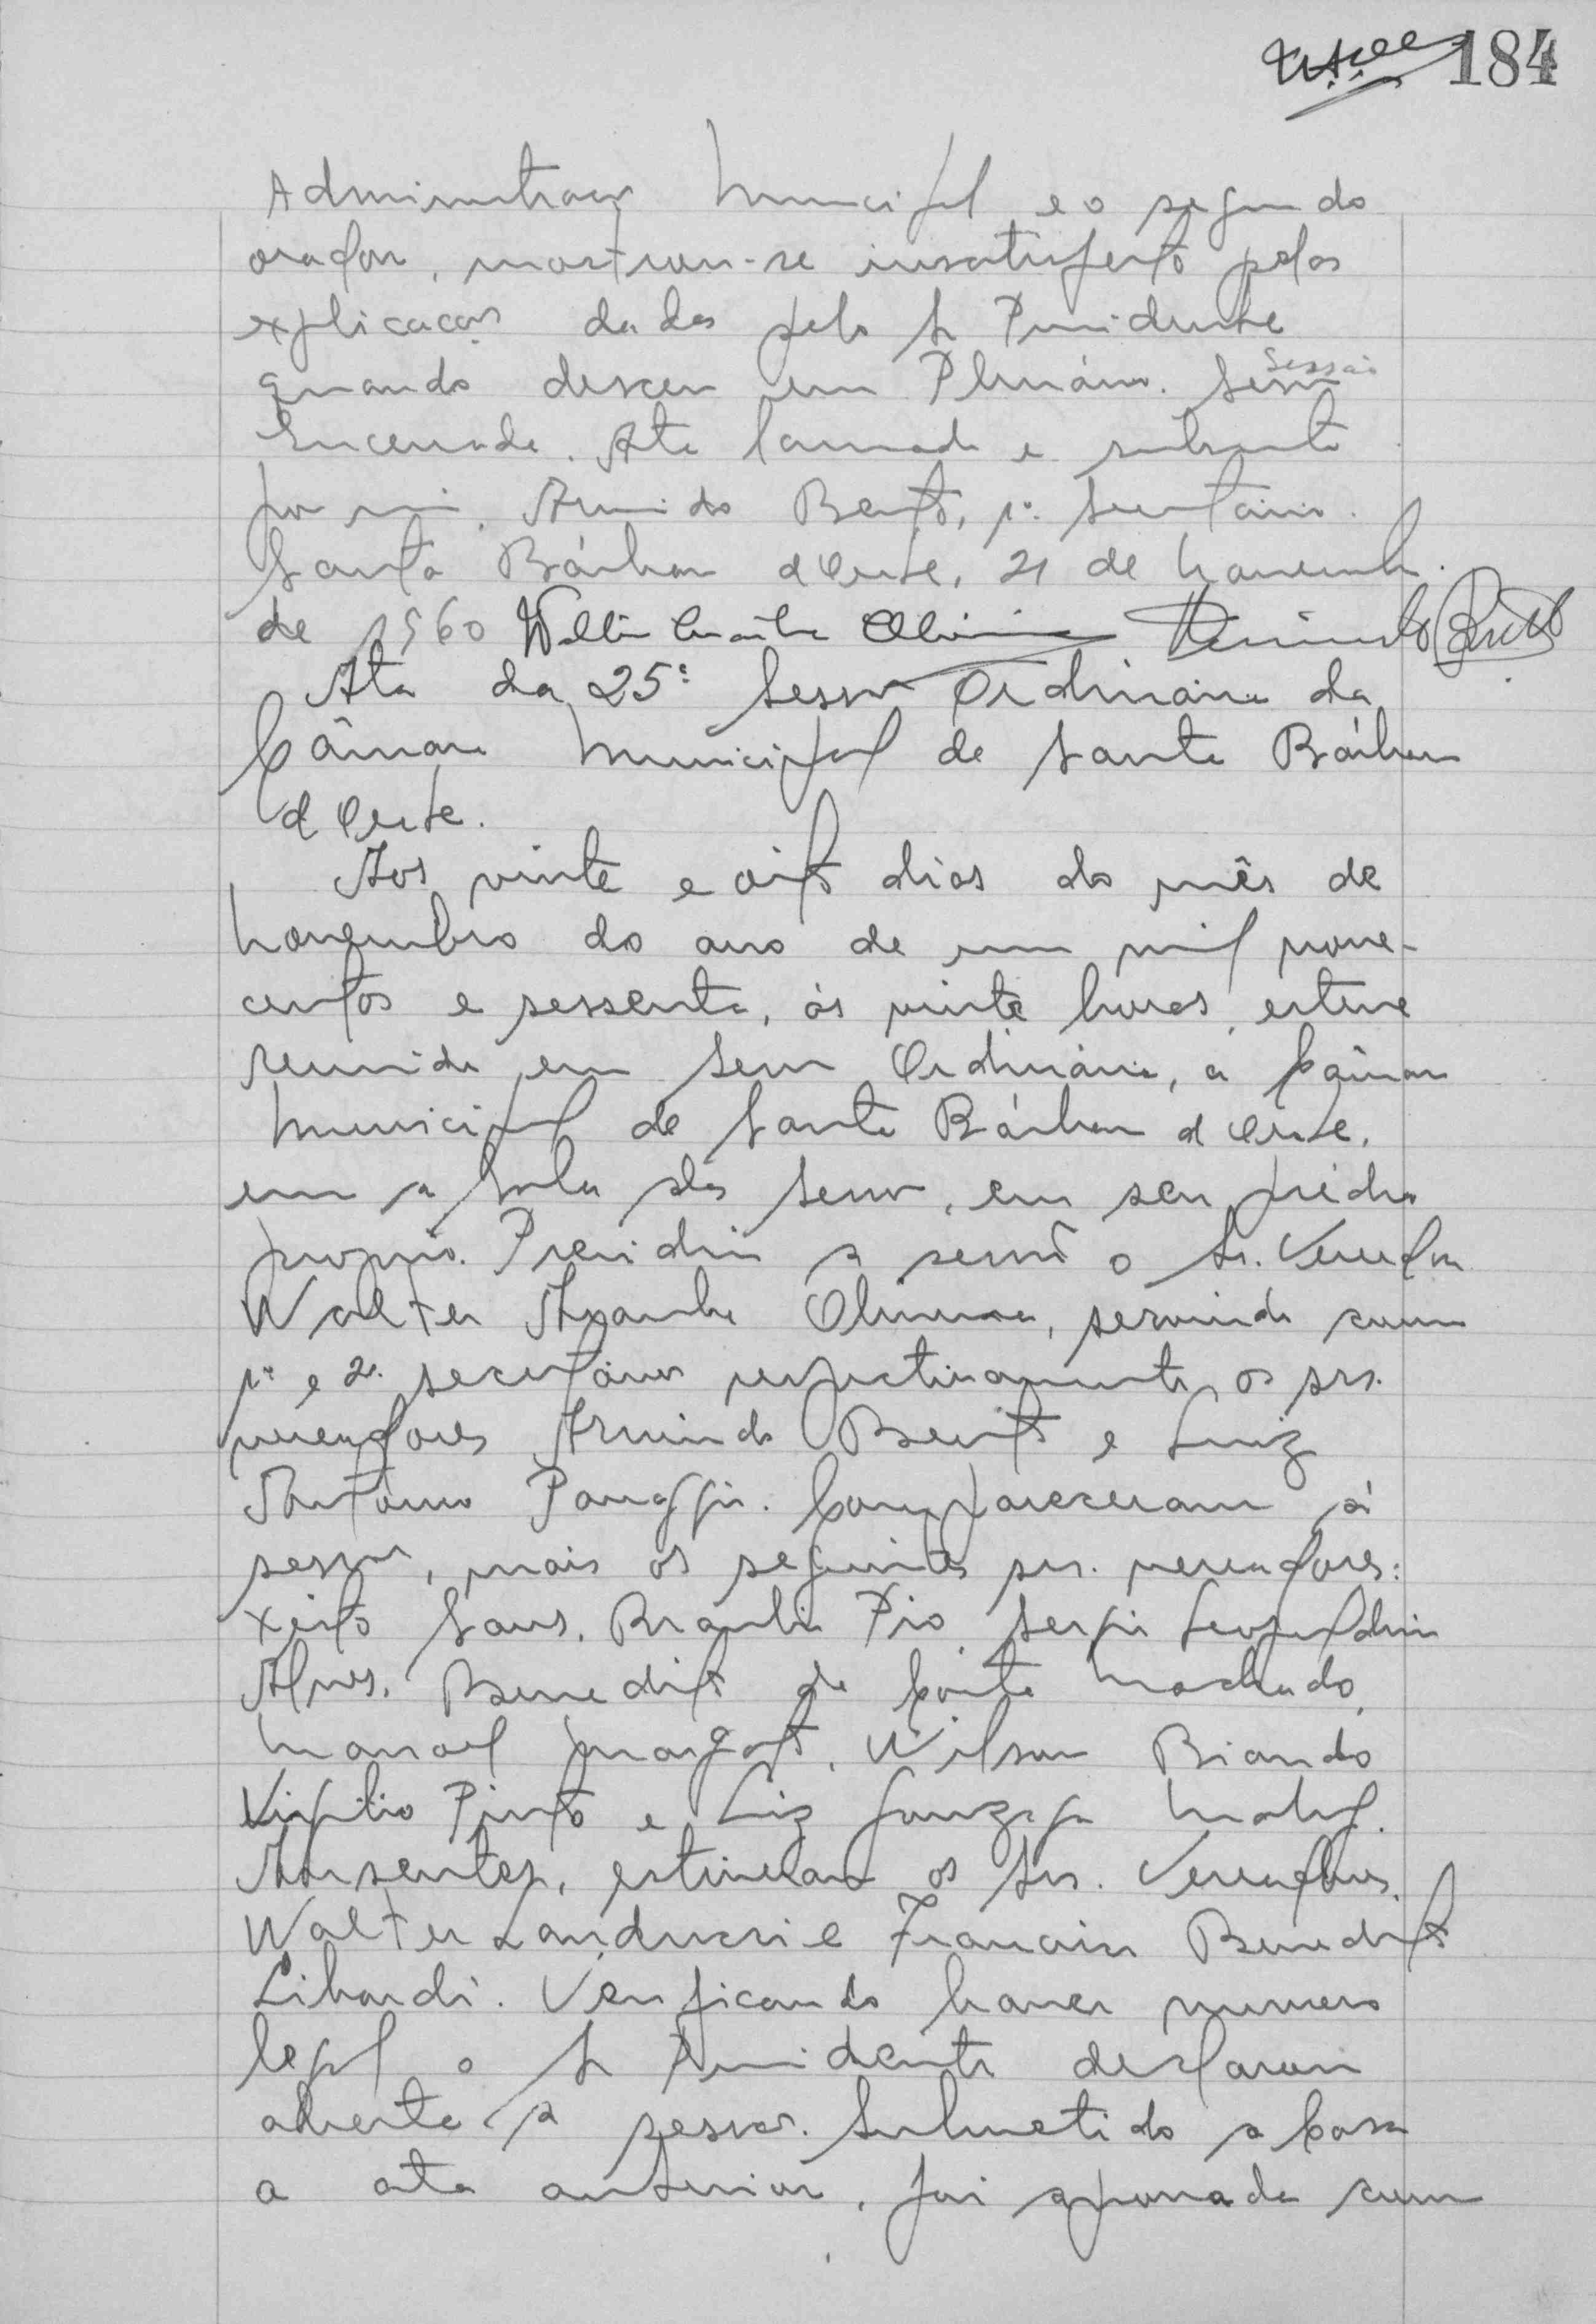 184
Administração Municipal e o segundo
orador, mostrou-se insatisfeito pelas
explicações dadas pelo Sr Presidente
quando desceu em Plenário. Sessão Sessão
Encerrada. Ata lavrada e subscrita
por mim, Armindo Bento, 1º Secretário.
Santa Bárbara d'Oeste, 21 de Novembro
de 1960
Ata da 25ª Sessão Ordinária da
Câmara Municipal de Santa Bárbara
d Oeste.
Aos vinte e oito dias do mês de
Novembro do ano de um mil nove-
centos e sessenta, às vinte horas, esteve
reunida em Sessão Ordinária, a Câmara
Municipal de Santa Bárbara d Oeste,
em a Sala das Sessões, em seu prédio
próprio. Presidiu a sessão o Sr. Vereador
Walter Oliveira, servindo como
1º e 2º secretários respectivamente, os srs.
vereadores Armindo Bento e Luiz
Antônio Panaggio. Compareceram à
sessão, mais os seguintes srs. vereadores:
Xisto Sans, Braulio Pio, Sergio Leopoldino
Alves, Benedito da Costa Machado,
Manoel Wilson Biando
Virgilio Pinto e Luiz Gonzaga
Ausentes, estiveram os Srs. Vereadores,
Walter Landucci e Francisco Benedito
Libardi. Verificando haver numero
legal o Sr Presidente declarou
aberta a sessão. Submetido a Casa
a ata anterior, foi aprovada com